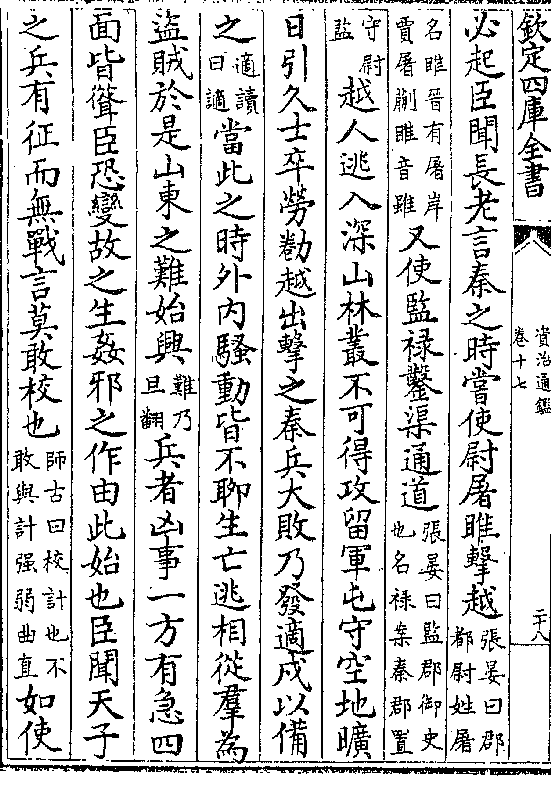 欽定四庫全書
資治通鑑
卷十七
二十八
必起臣聞長老言秦之時嘗使尉屠睢擊越張晏曰郡都尉姓屠
名睢晉有屠岸賈屠蒯睢音雖又使監禄鑿渠通道張晏曰監郡御史也名禄案秦郡置
守尉監越人逃入深山林叢不可得攻留軍屯守空地曠
日引久士卒勞勌越出擊之秦兵大敗乃發適戍以備
之適讀曰讁當此之時外内騷動皆不聊生亡逃相從羣為
盜賊於是山東之難始興難乃旦翻兵者凶事一方有急四
面皆聳臣恐變故之生姦邪之作由此始也臣聞天子
之兵有征而無戰言莫敢校也師古曰校計也不敢與計强弱曲直如使